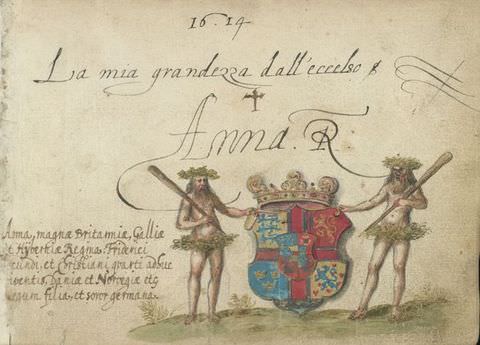 16.14
La mia grandezza dall'eccelso
Anna. R
Anna, magnæ Britanniæ, Galliæ
et Hyberniæ Regina. Friderici
secundi, et Christiani quarti adhuc
viventis, Daniæ et Norvegiæ etc
Regum filia, et soror germana.